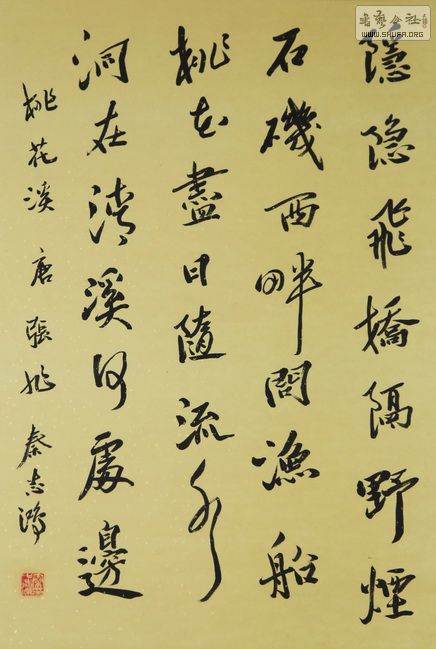 隱隐飛橋隔野煙
石磯西畔問漁船
桃花盡日隨流水
洞在清溪何處邊
桃花溪 唐 張旭 秦志鴻
書藝公社
WWW.SHUFA.ORG